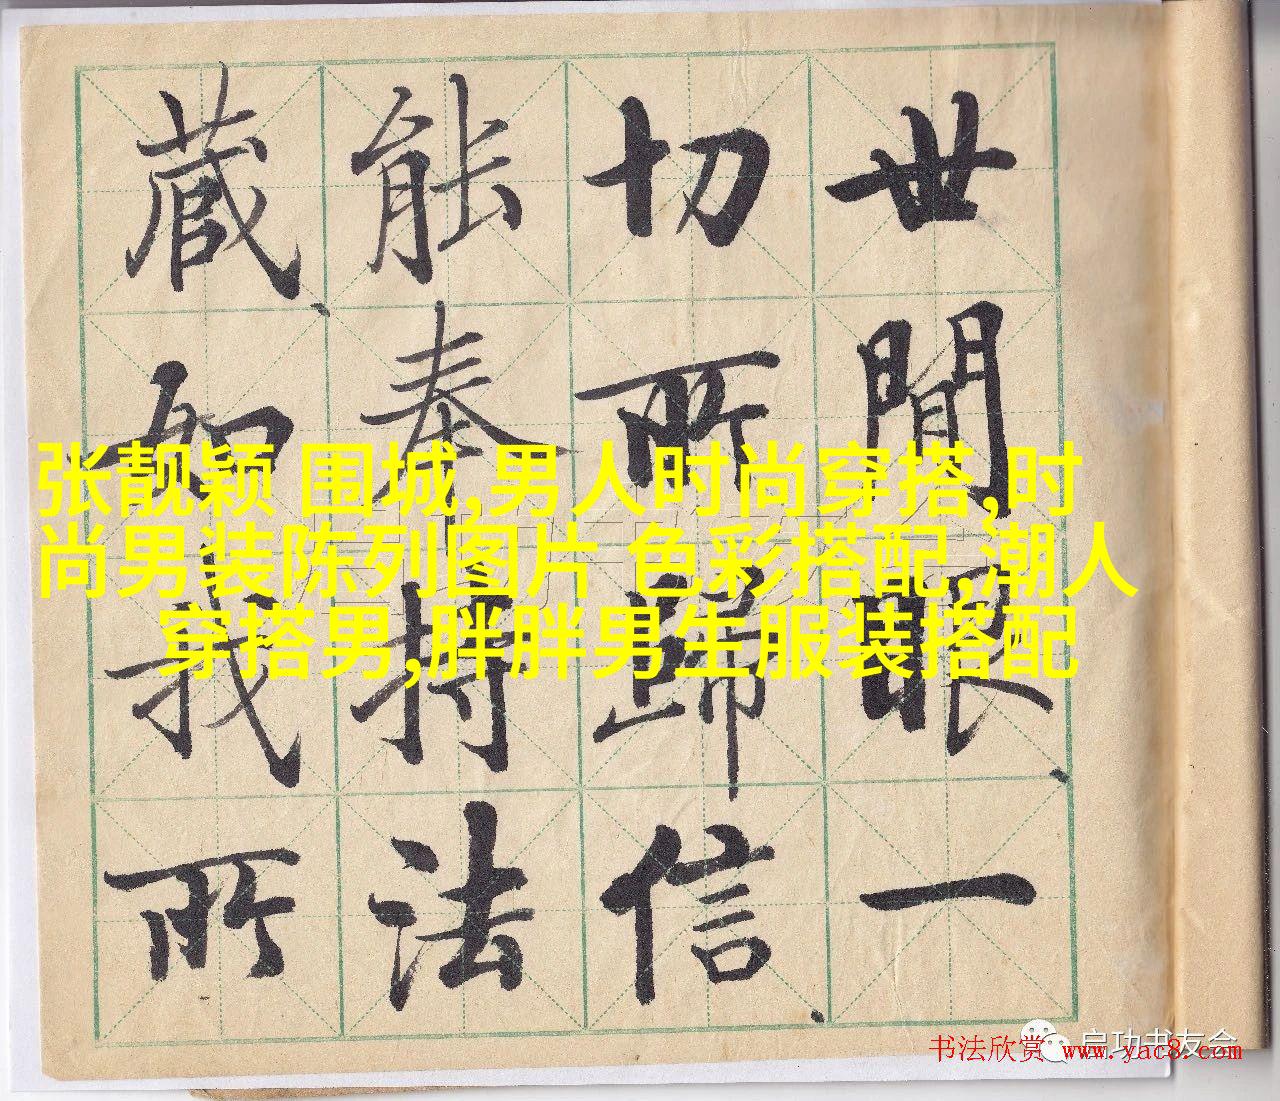 世間眼一
切所歸信
能奉持法
藏如我所
张靓颖 围城,男人时尚穿搭,时
尚男装陈列图片 色彩搭配,潮人
穿搭男,胖胖男生服装搭配
启功书友会
书法欣赏 www.yac8.com